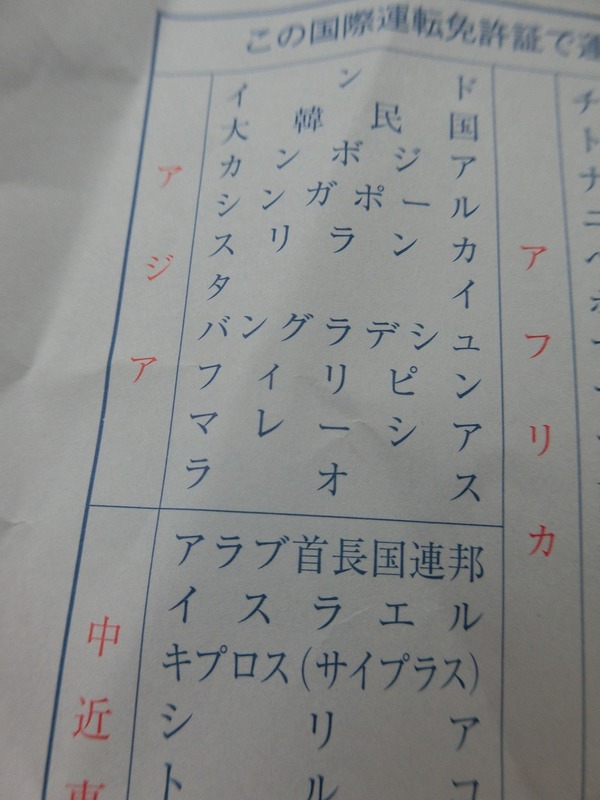 この国際運転免許証で
アジア
インド
大韓民国
カンボジア
シンガポール
スリランカ
タイ
バングラデシュ
フィリピン
マレーシア
ラオス
アフリカ
中近東
アラブ首長国連邦
イスラエル
キプロス(サイプラス)
シリア
トルコ